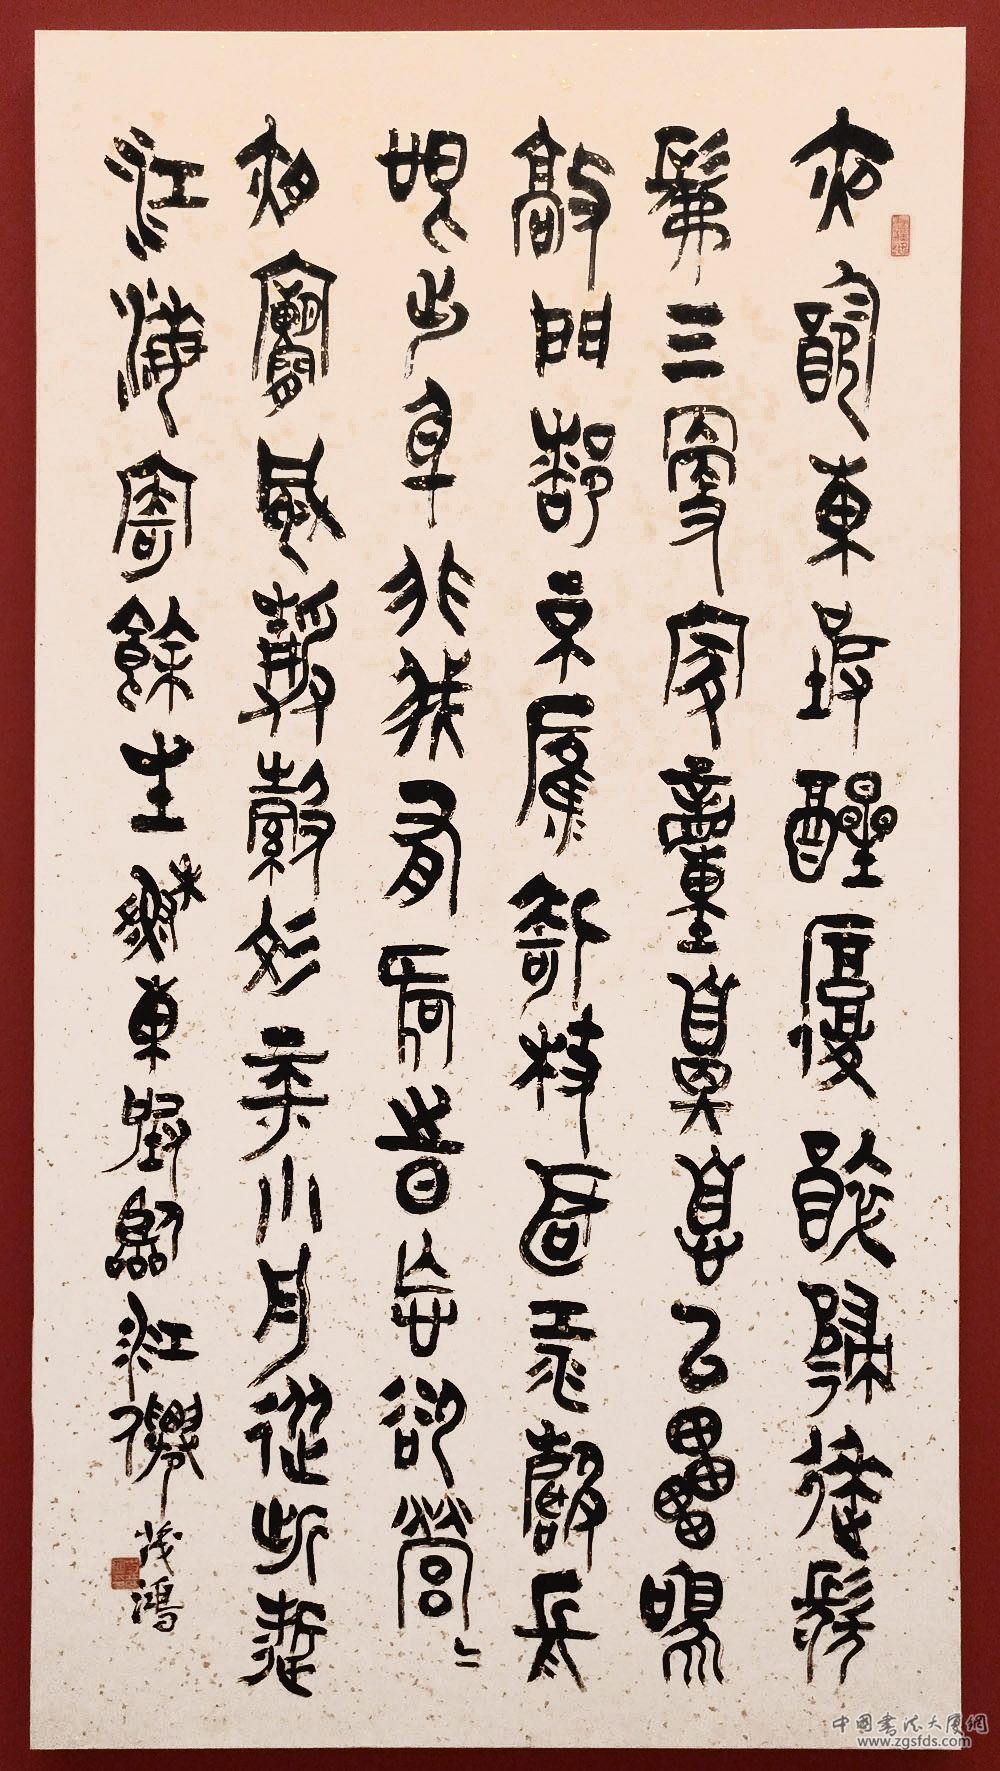 夜飲東坡醒復醉歸來髣
髴三更家童鼻息已雷鳴
敲門都不應倚杖聽江聲長
恨此身非我有何時忘卻營〻
夜闌風靜縠紋平小舟從此逝
江海寄餘生蘇東坡臨江僊茂鴻
中国書法大厦網
www.zgsfds.com